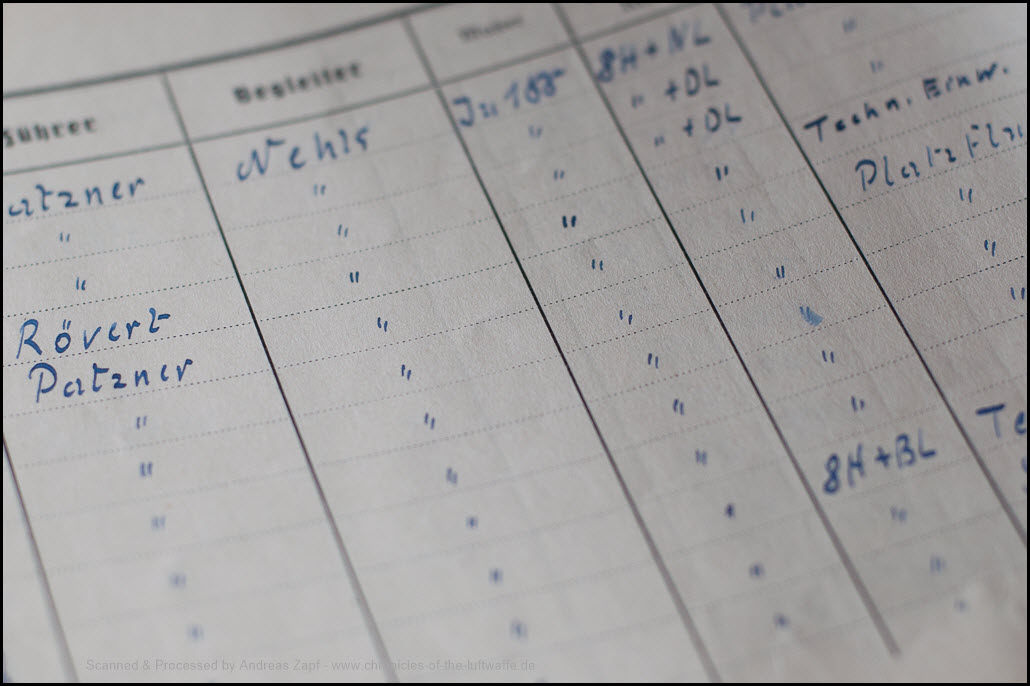 Führer Begleiter Muster
atzner Nehls Ju 188 8H+NL
" " " " +DL "
" " " " +DL "
Rövert " " " Techn. Einw.
Patzner " " " Platzflu
" " " " "
" " " " "
" " " " "
" " " "
" " " 8H+BL Te
" " "
" "
"
Scanned & Processed by Andreas Zapf - www.chronicles-of-the-luftwaffe.de